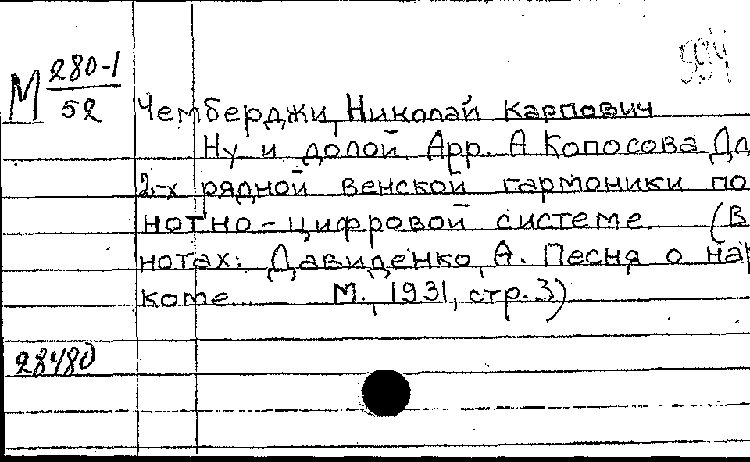 594
М 280-1
52
Чемберджи, Николай Карпович
Ну и долой. Арр. А Копосова Дл
2-х рядной венской гармоники по
нотно-цифровой системе. (В
нотах: Давиденко, А. Песня о нар
коте. - М., 1931, стр. 3)
28480